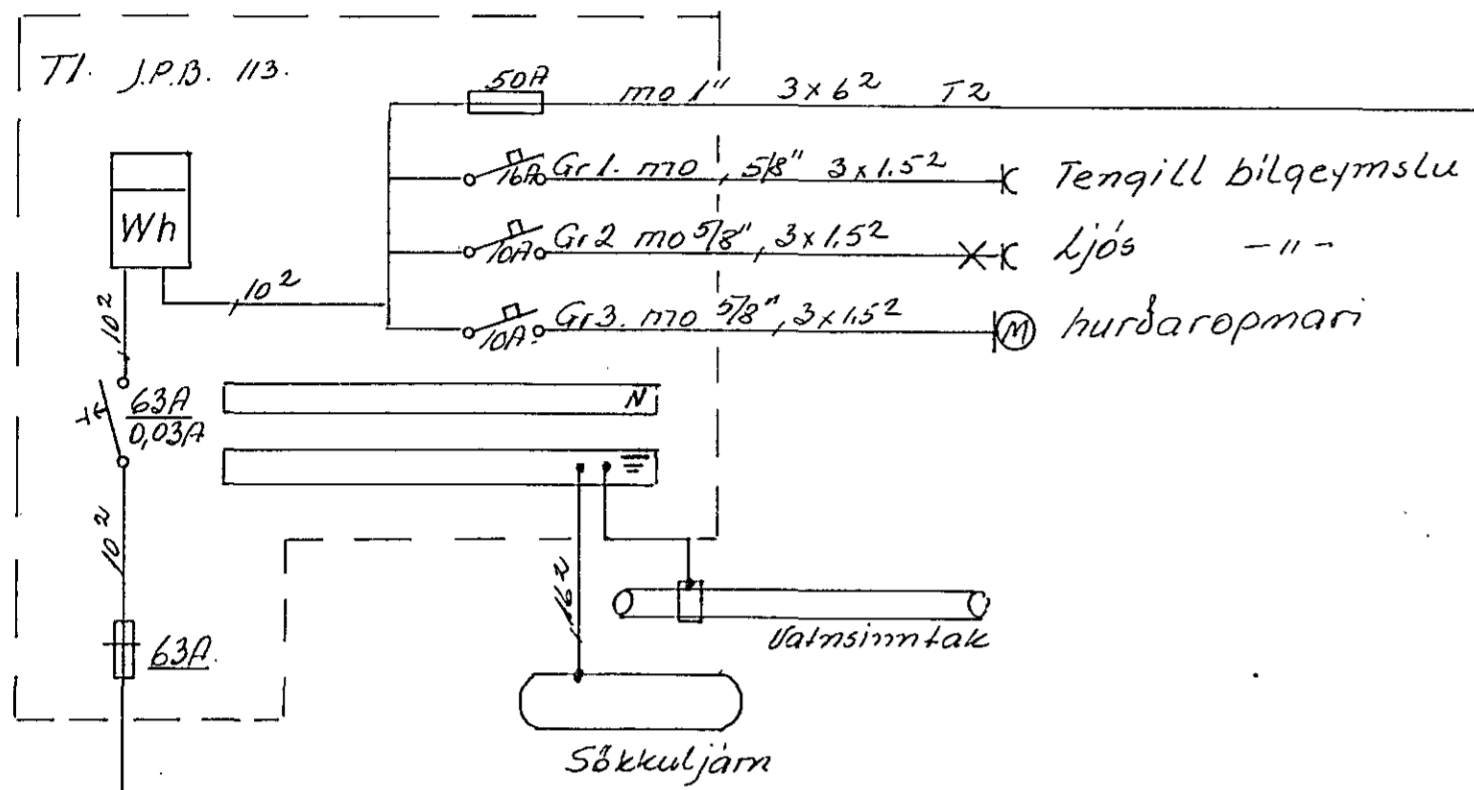 T1. J.P.B. 113.
50A mo 1" 3x6² T2
16A Gr1. mo, 5/8" 3x1.5² Tengill bílgeymslu
Wh
10A Gr2 mo 5/8", 3x1.5² Ljós -"-
10²
10A Gr3. mo 5/8", 3x1.5² M hurðaropnari
10²
63A
0,03A
N
10²
16²
63A.
Vatnsinntak
Sökkuljárn